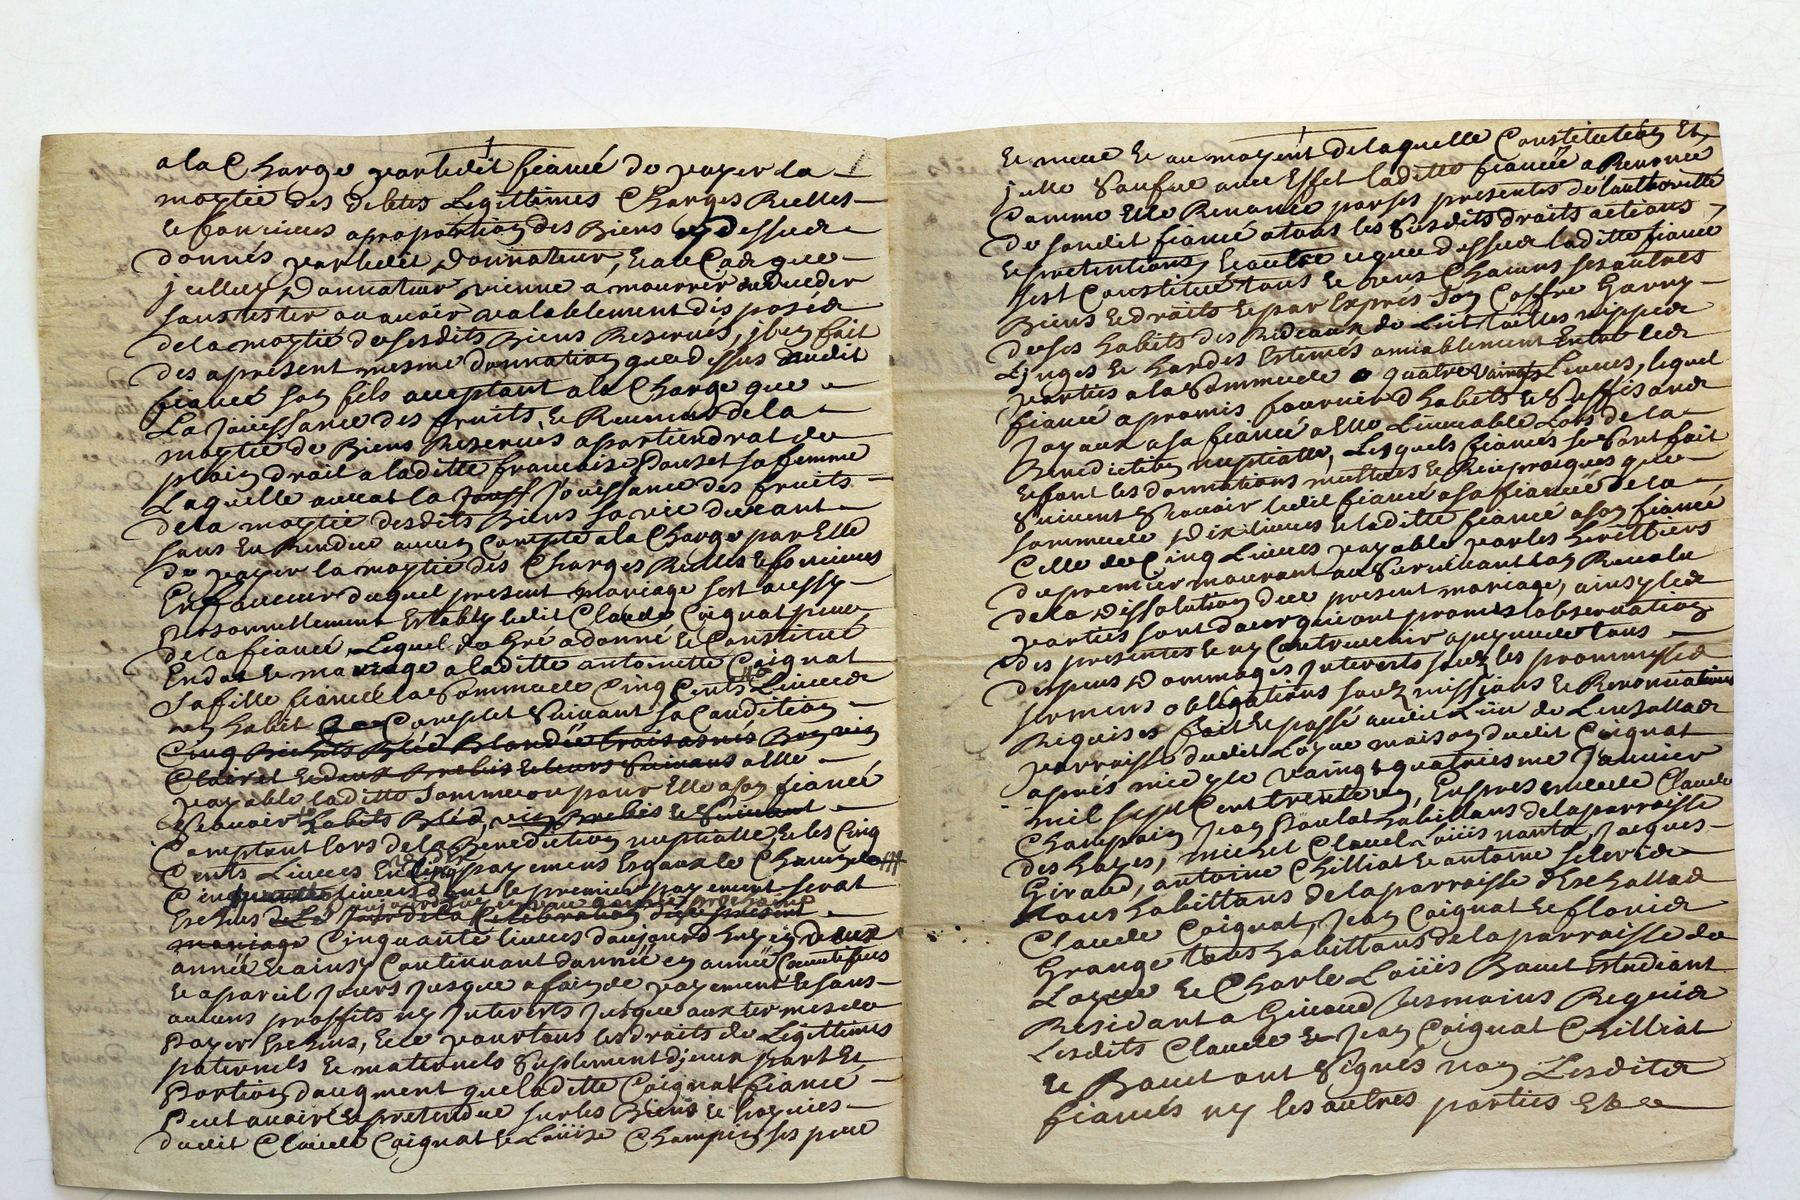 a la Charge par ledit fiancé de payer la
moytié des debtes Legittimes Charges Reelles
et foncieres a proportion des Biens cy dessus
donnés par ledit Donnateur, et au Cas que
jcelluy Donnateur vienne a mourrir ou deceder
sans tester ou avoir valablement disposé
de la moytié de sesdits Biens Reservés, jl en fait
des apresent mesme donnation que dessus audit
fiancé son fils acceptant a la Charge que
La Joüissance des fruits et Revenus de la
moytié de Biens Reservés apartiendrat de
plain droit a laditte francoise Pauset sa femme
Laquelle aurat la Jouiss Joüissance des fruits
de la moytié desdits Biens sa vie durant
sans En Rendre aucun Compte a la Charge par Elle
de payer la moytié des Charges Reelles et foncieres
En faveur duquel present mariage s'est aussy
Personnellement Etably ledit Claude Coignat pere
de la fiancé, Lequel de Gré a donné et Constitué
En dot et mariage a laditte antoinette Coignat
Sa fille fiancé la Somme de Cinq Cents Livres
un habit Complet Suivant sa Condition
Cinq Bichets Bled Blondée trois asnés Bon vin
Clairet et deux Brebis et leurs Suivans a Elle
payable laditte Somme ou pour Elle a son fiancé
Scavoir habits Bled, vin Brebis et Suivant
Comptant lors de la Benediction nuptialle, et les Cinq
Cents Livres En payemens Egaux de Chacun
Cinquante livres dont le premier payement serat
Escheus Le Jour de la Celebration du present
mariage Cinquante livres d'aujourd huy en deux
année et ainsy Continuant d'année en année
et a pareil Jours Jusque a fin de payement et sans
aucuns proffits ny Interets Jusque aux termes de
Payer Escheus, et ce pour tous les droits de Legittimes
paternels et maternels Suplement d'jceux part et
Portion d'augment que laditte Coignat fiancé
Peut avoir et pretendre sur les Biens et hoyries
dudit Claude Coignat et Loüise Champin ses pere
et mere et au moyent de laquelle Constitution Et
jcelle Sauf aux Effet laditte fiancée a Renoncé
Comme Elle Renonce par ses presentes de l'authoritté
de sondit fiancé a tous les Susdits droits actions
et pretentions, Et outre ce que dessus laditte fiancé
s'est Constitué tous et uns Chacuns ses autres
Biens et droits et par Exprés Son Coffre Garny
de ses habits des Rideaux de Lit toilles nippes
Linges et hardes Estimés amiablement Entre les
parties a la Somme de quatre vaingts Livres, lequel
fiancé a promis fournir d'habits et Suffisans
Joyaux a sa fiancé a Elle Livrable Lors de la
Benediction nuptialle, Lesquels fiancés se Sont fait
et font les donnations mutuelles et Reciproques que
Suivent Scavoir ledit fiancé a sa fiancée de la
somme de Dix livres et laditte fiancé a son fiancé
Celle de Cinq Livres payable par les heritiers
du premier mourant au Survivant
de la Dissolution du present mariage, ainsy les
parties sont d'acorque ont promis l'observation
des presentes et ny Contrevenir a peyne de tous
despens Dommages Interets soubz les prommesses
sermens obligations soubzmissions et Renonciations
Requises fait et passé audit Lieu de
parroisse dudit Layne maison dudit Coignat
aprés midy le vaingt quatriesme Janvier
mil sept Cent trente un, En presence de Claude
Champin Jean Poulat habittans de la parroisse
des hayes, michel Clavel Loüis nanta, Jacques
Giraud, antoine Chilliat et antoine
tous habittans de la parroisse d'Eschallas
Claude Coignat, Jean Coignat et floris
Grange tous habittans de la parroisse de
Layne et Charle Loüis Bouet Estudiant
Residant a Givord Tesmoins Requis
Lesdits Claude et Jean Coignat Chilliat
et Bouet ont Signés non Lesdits
fiancés ny les autres parties Etc